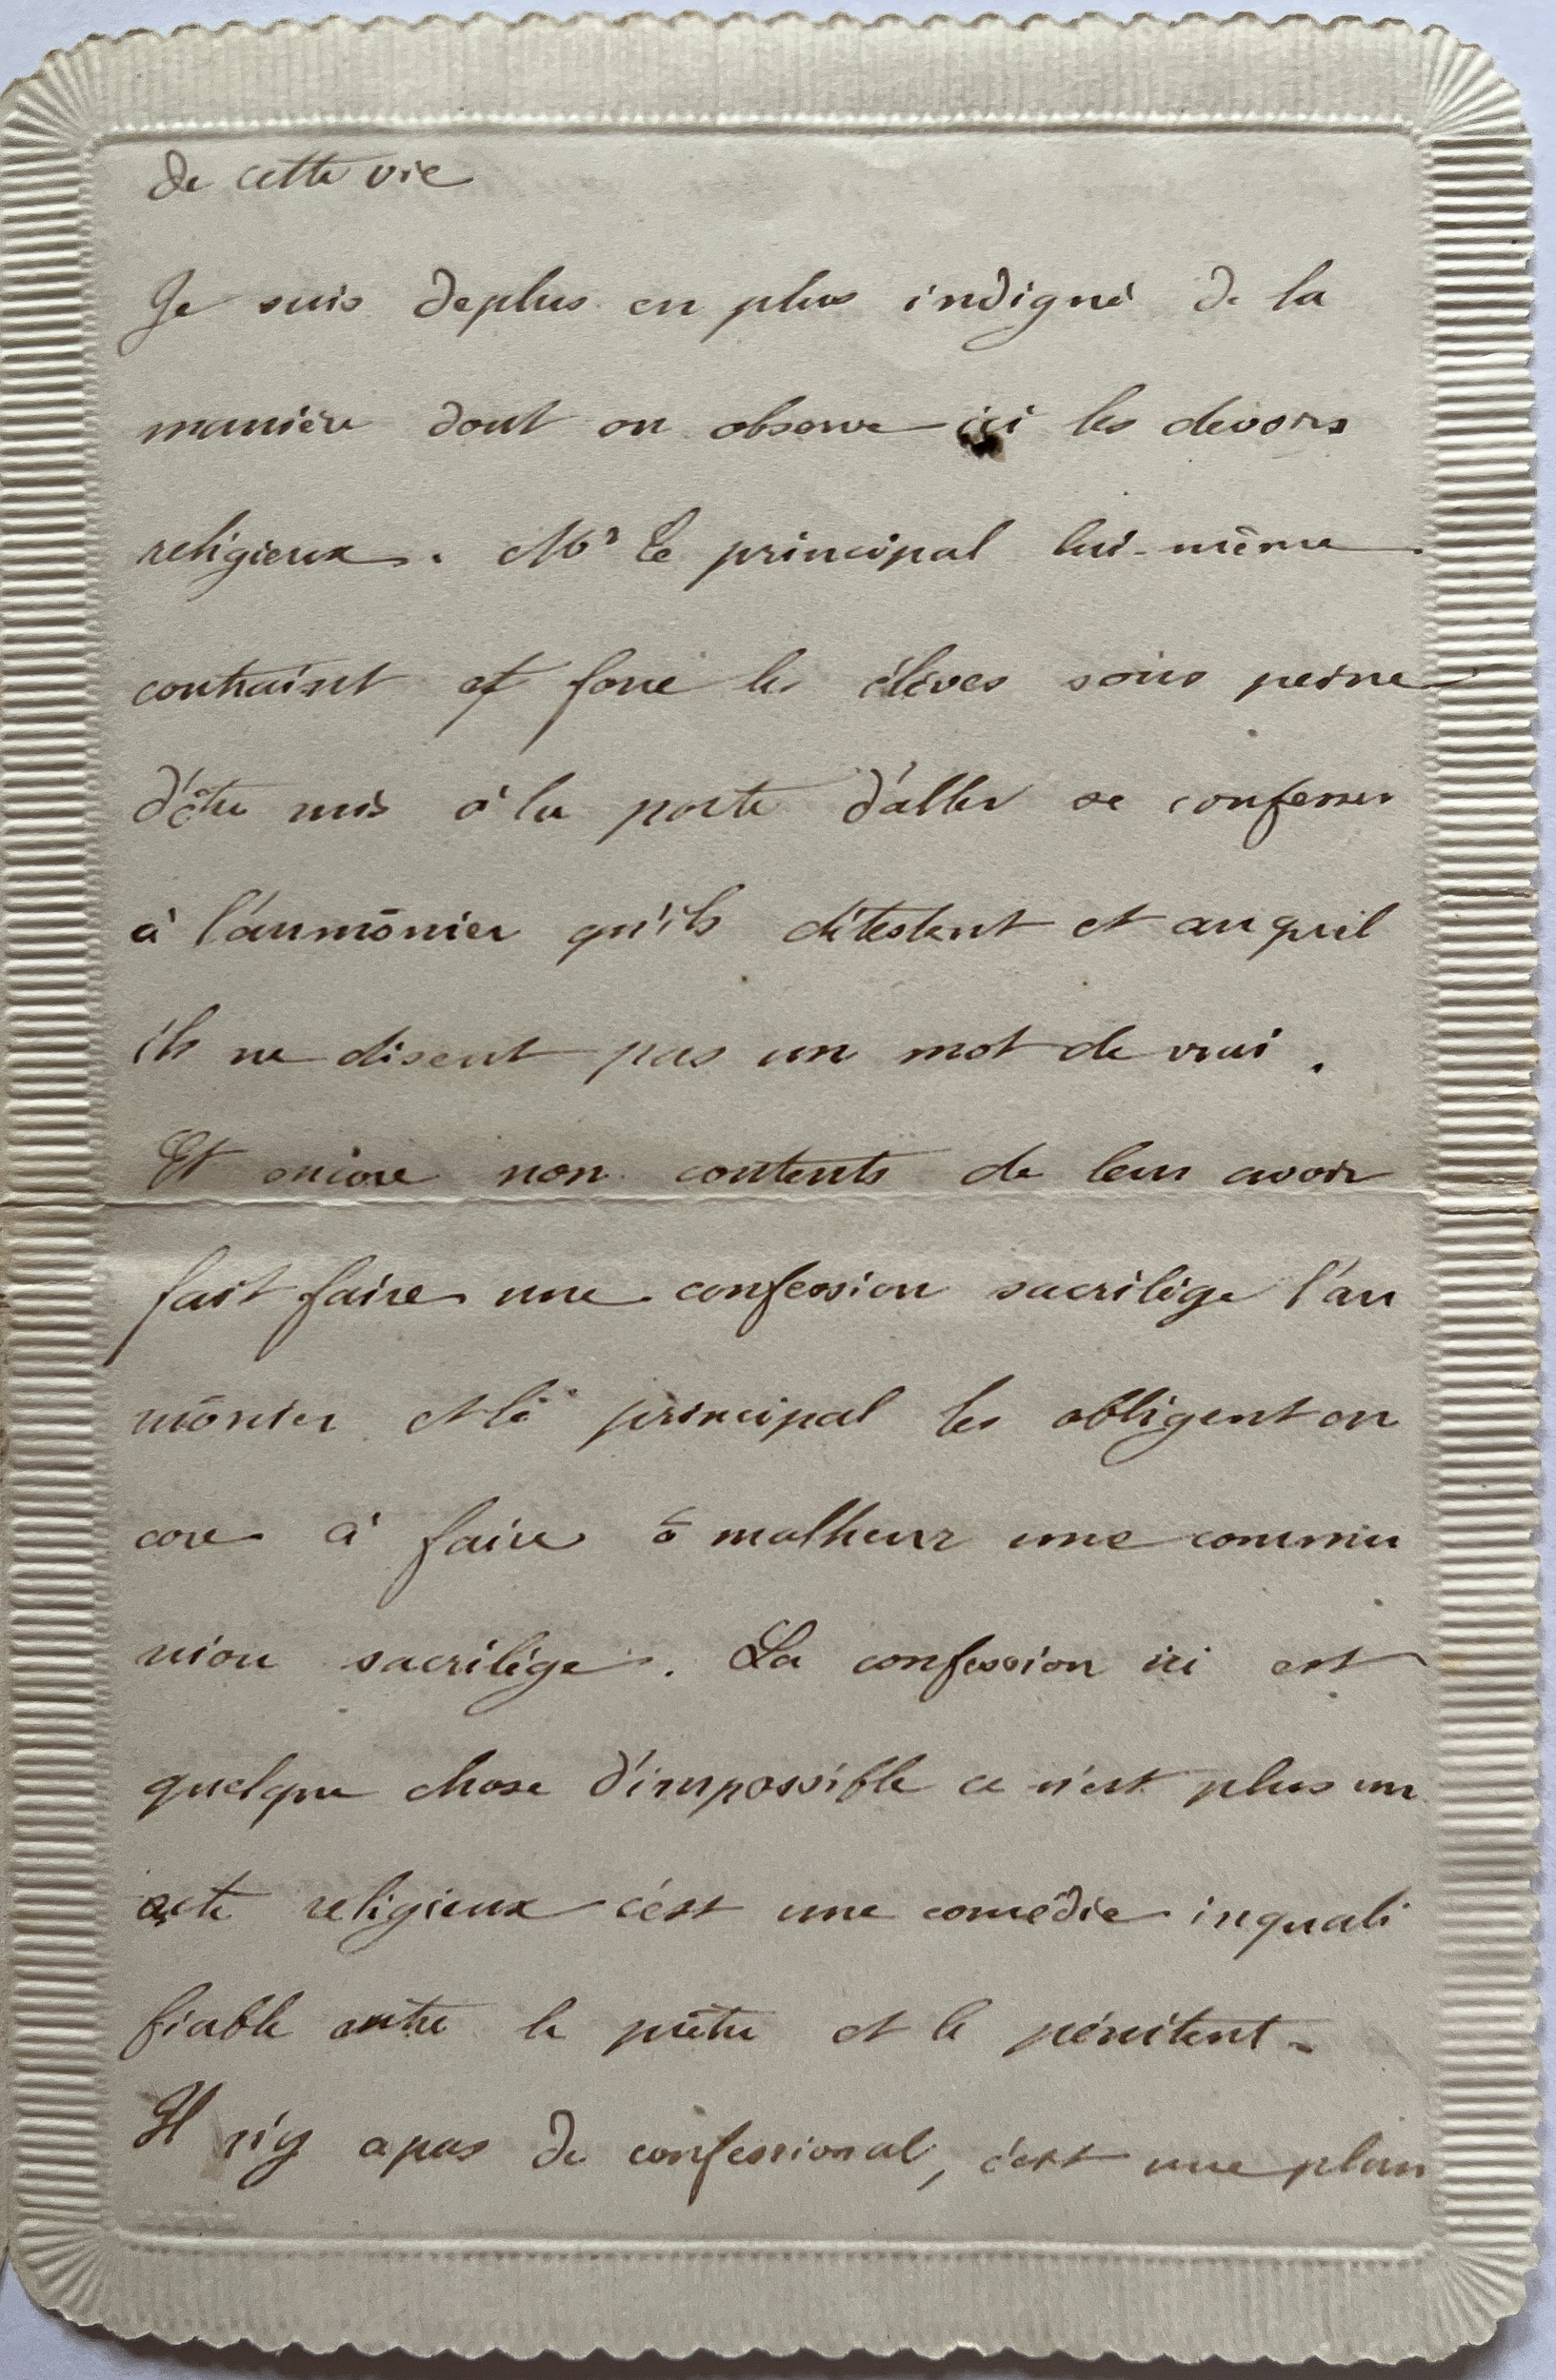 de cette vie
Je suis deplus en plus indigné de la
manière dont on observe ici les devoirs
religieux. Mr Le principal lui-même
contraint et force les élèves sous peine
d'être mis à la porte d'aller se confesser
à l'aumônier qu'ils détestent et au quel
ils ne disent pas un mot de vrai.
Et encore non contents de leur avoir
fait faire une confession sacrilège l'au
mônier et le principal les obligent en
core à faire ô malheur une commu
nion sacrilège. La confession ici est
quelque chose d'impossible ce n'est plus un
acte religieux c'est une comédie inquali
fiable entre le prêtre et le pénitent.
Il n'y a pas de confessional, c'est une plan